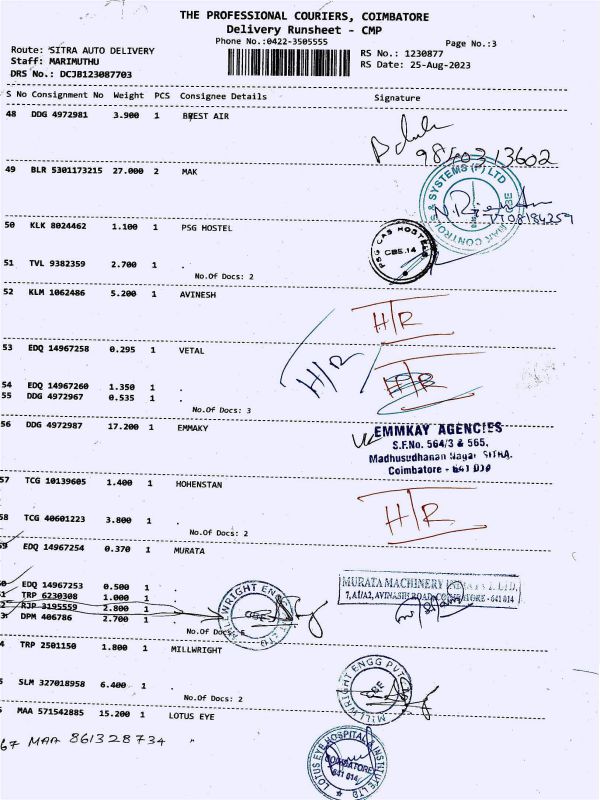 THE PROFESSIONAL COURIERS, COIMBATORE
Delivery Runsheet - CMP
Phone No.:0422-3505555
Page No.:3
Route: SITRA AUTO DELIVERY
Staff: MARIMUTHU
DRS No.: DCJB123087703
RS No.: 1230877
RS Date: 25-Aug-2023
S No Consignment No Weight PCS Consignee Details Signature
48 DDG 4972981 3.900 1 BREST AIR
9840313602
49 BLR 5301173215 27.000 2 MAK
& SYSTEMS (P) LTD
50 KLK 8024462 1.100 1 PSG HOSTEL
PSG CAS HOSTEL
CBE.14
51 TVL 9382359 2.700 1 .
No.Of Docs: 2
52 KLM 1062486 5.200 1 AVINESH
H/R
H/R
53 EDQ 14967258 0.295 1 VETAL
H/R
54 EDQ 14967260 1.350 1 .
55 DDG 4972967 0.535 1 .
No.Of Docs: 3
56 DDG 4972987 17.200 1 EMMAKY
EMMKAY AGENCIES
S.F.No. 564/3 & 565,
Madhusudhanan Nagar SITRA.
Coimbatore - 641 014
57 TCG 10139605 1.400 1 HOHENSTAN
H/R
58 TCG 40601223 3.800 1 .
No.Of Docs: 2
59 EDQ 14967254 0.370 1 MURATA
MURATA MACHINERY INDIA PVT. LTD.
7, A1/A2, AVINASHI ROAD, COIMBATORE - 641 014
EDQ 14967253 0.500 1 .
TRP 6230308 1.000 1 .
RJP 3195559 2.800 1 .
DPM 406786 2.700 1 .
No.Of Docs: 5
MILLWRIGHT ENGG
CBE
TRP 2501150 1.800 1 MILLWRIGHT
SLM 327018958 6.400 1
No.Of Docs: 2
MILLWRIGHT ENGG PVT LTD
CBE
MAA 571542885 15.200 1 LOTUS EYE
67 MAA 861328734 "
LOTUS EYE HOSPITAL & INSTITUTE LTD
COIMBATORE
641 014